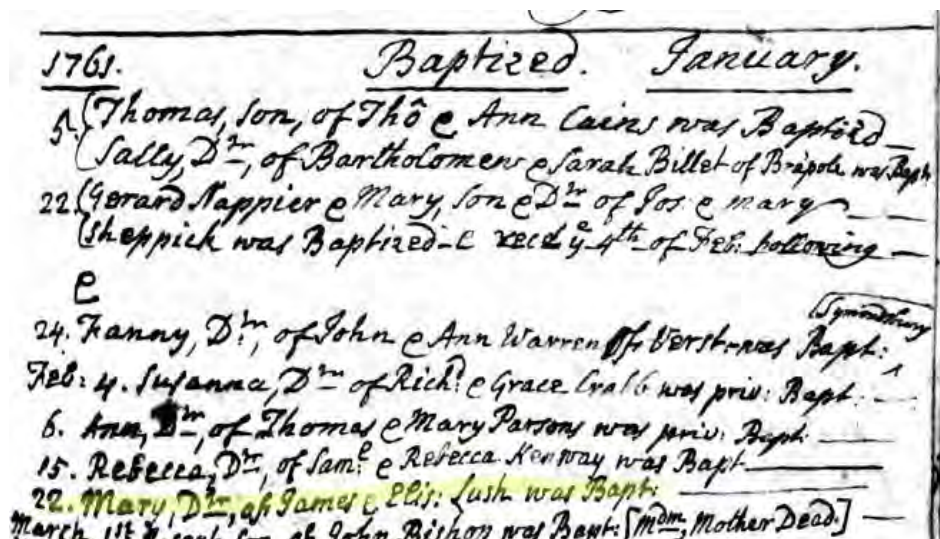 1761. Baptized. January.
5. (Thomas, Son, of Thô & Ann Cains was Baptizd
(Sally, Dtr, of Bartholomew & Sarah Billet of Brápole was Bapt:
22. (Gerard Nappier & Mary, Son & Dtr of Jos: & Mary
(Sheppick was Baptized & recd ye 4th of Feb: following
&
(Symondsbury
24. Fanny, Dtr, of John & Ann Warren of was Bapt:
Feb: 4. Susanna, Dtr of Richd & Grace Crabb was priv: Bapt.
6. Ann, Dtr, of Thomas & Mary Parsons was priv: Bapt.
15. Rebecca, Dtr, of Saml & Rebecca Kenway was Bapt
22. Mary, Dtr, of James & Elis: Lush was Bapt:
March 1st Son of John Bishop was Bapt: [Mdm, Mother Dead.]